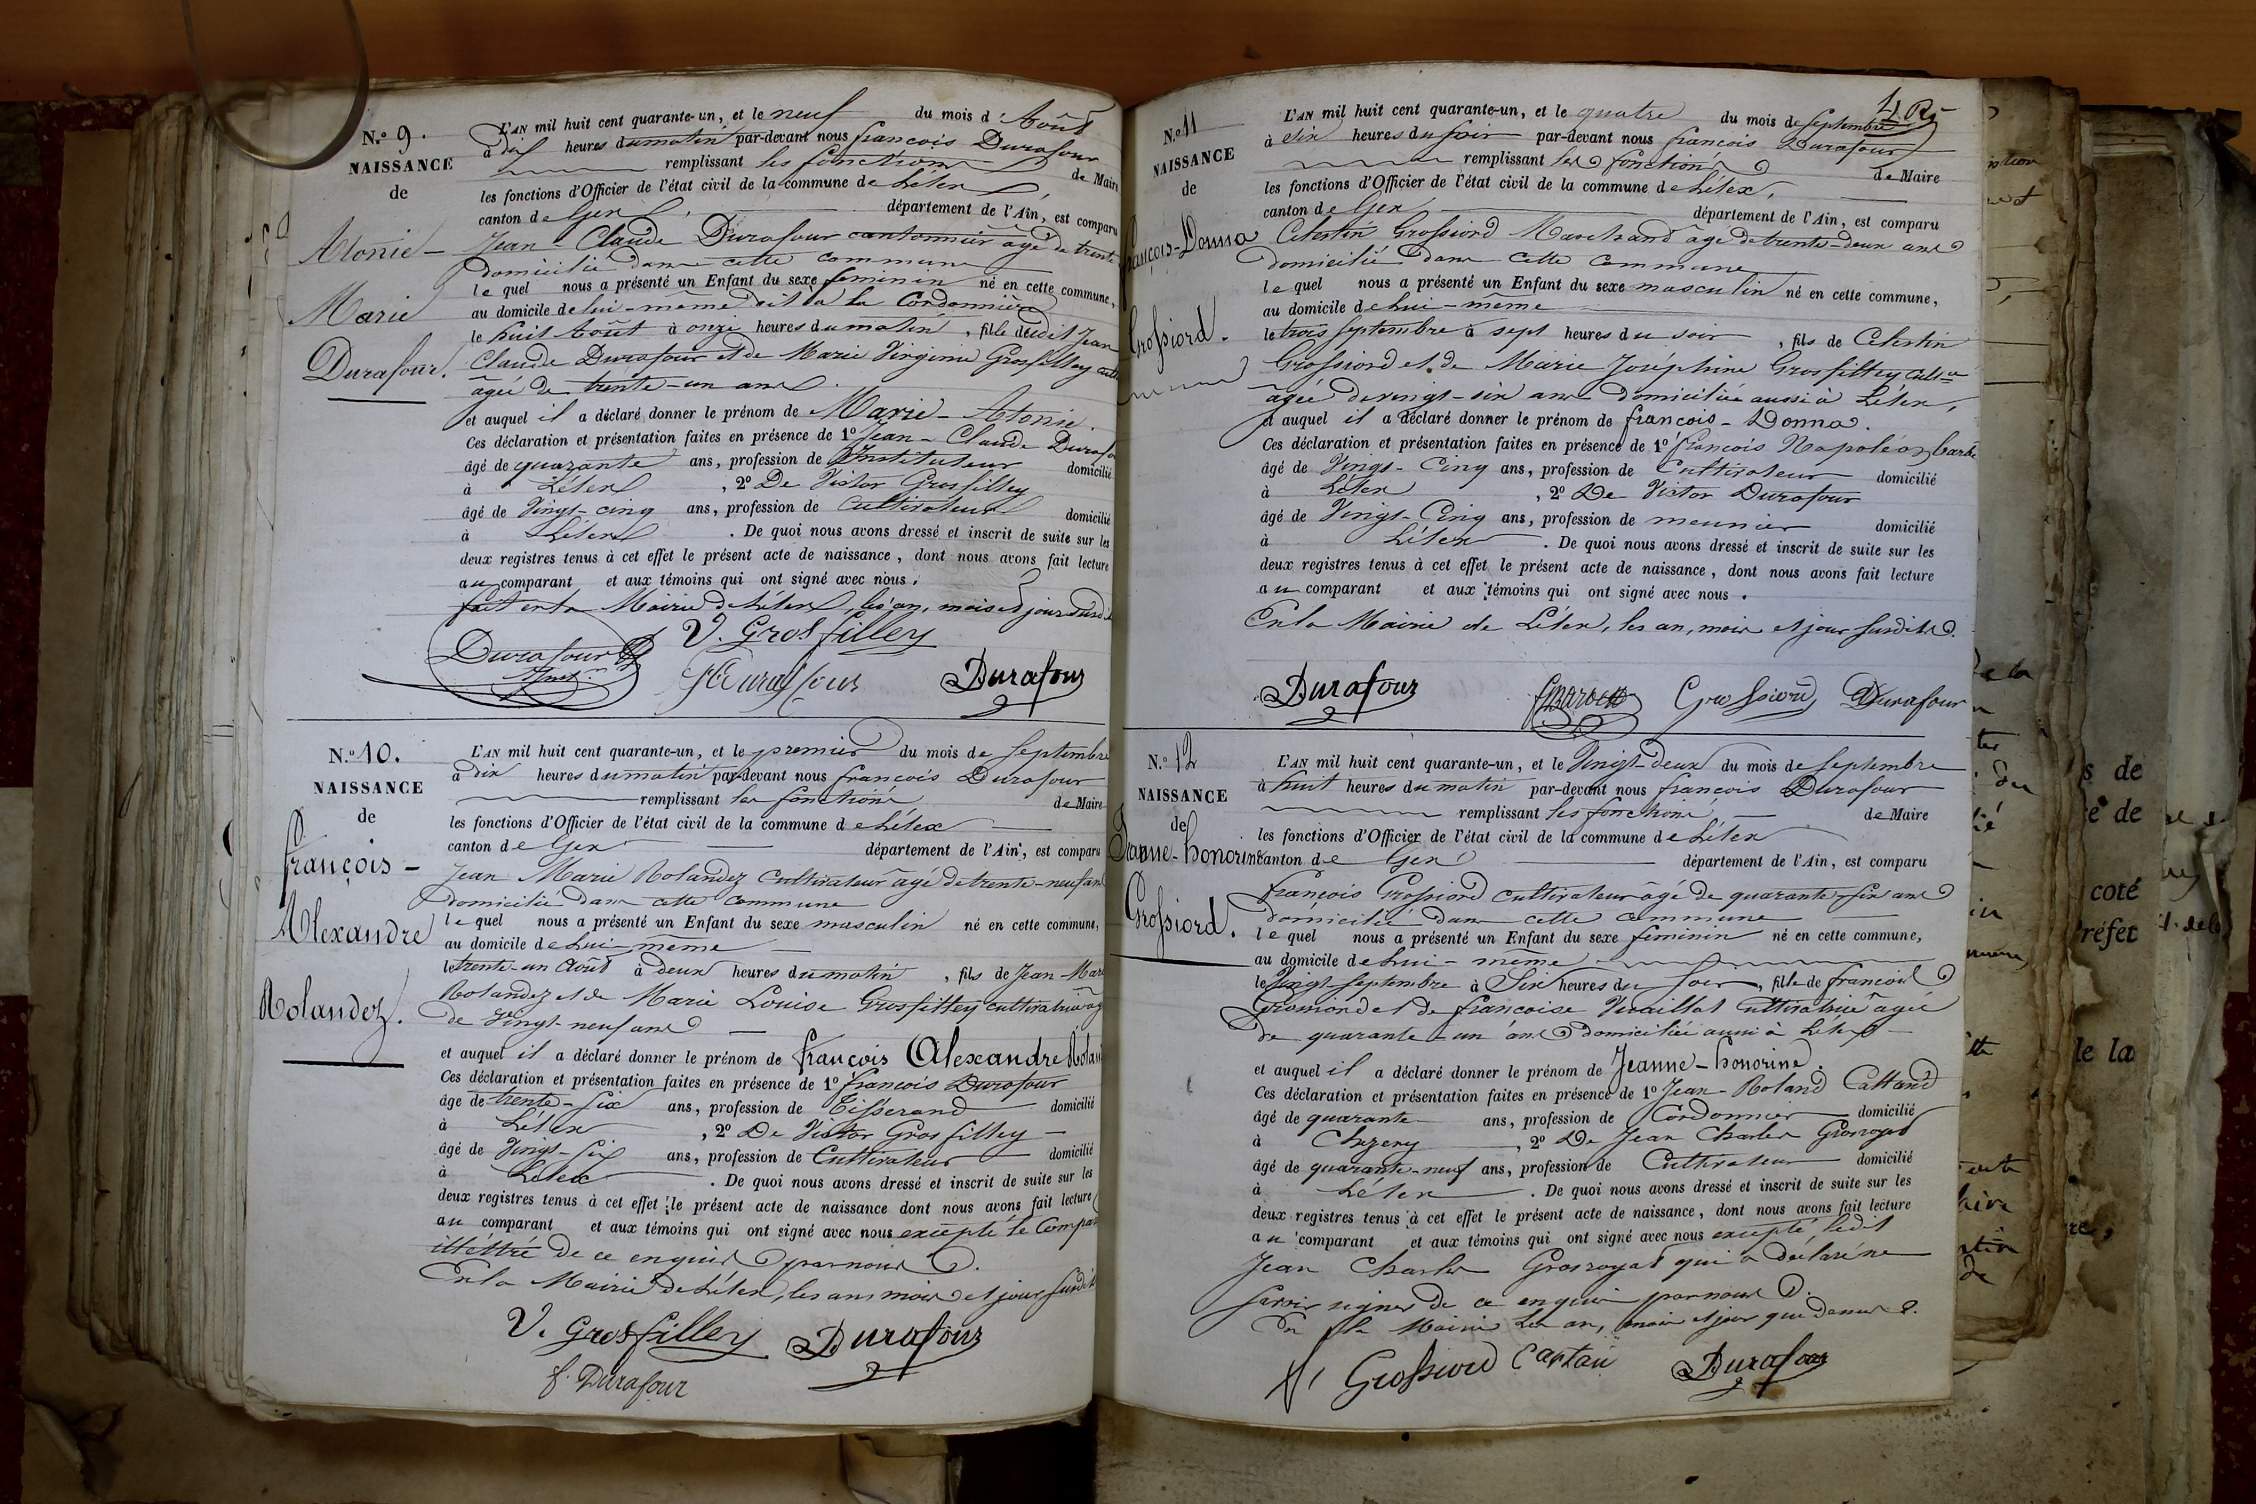 N.º 9.
NAISSANCE
de
Atonie-
Marie
Durafour.
L'AN mil huit cent quarante-un, et le neuf du mois d'Août
à dix heures du matin par-devant nous françois Durafour
remplissant les fonctions de Maire
les fonctions d'Officier de l'état civil de la commune de Lélex,
canton de Gex département de l'Ain, est comparu
Jean-Claude Durafour cantonnier âgé de trente
domicilié dans cette commune
le quel nous a présenté un Enfant du sexe féminin né en cette commune,
au domicile de lui-même dit à la Cordonnière
le huit Août à onze heures du matin, fille dudit Jean
Claude Durafour et de Marie Virginie Grosfilley
âgée de trente-un ans.
et auquel il a déclaré donner le prénom de Marie-Atonie.
Ces déclaration et présentation faites en présence de 1º Jean-Claude Durafo
âgé de quarante ans, profession de Instituteur domicilié
à Lélex, 2º De Victor Grosfilley
âgé de Vingt-cinq ans, profession de Cultivateur domicilié
à Lélex. De quoi nous avons dressé et inscrit de suite sur les
deux registres tenus à cet effet le présent acte de naissance, dont nous avons fait lecture
au comparant et aux témoins qui ont signé avec nous.
fait en la Mairie de Lélex, les an, mois et jour susdits
V. Grosfilley
Durafour
Durafour
Durafour
N.º 10.
NAISSANCE
de
françois-
Alexandre
Rolandez.
L'AN mil huit cent quarante-un, et le premier du mois de Septembre
à dix heures du matin par-devant nous françois Durafour
remplissant les fonctions de Maire
les fonctions d'Officier de l'état civil de la commune de Lélex
canton de Gex département de l'Ain, est comparu
Jean Marie Rolandez Cultivateur âgé de trente-neuf an
domicilié dans cette commune
le quel nous a présenté un Enfant du sexe masculin né en cette commune,
au domicile de lui-même
le trente-un Août à deux heures du matin, fils de Jean-Mar
Rolandez et de Marie Louise Grosfilley cultivatrice âg
de Vingt-neuf ans
et auquel il a déclaré donner le prénom de françois Alexandre Rolan
Ces déclaration et présentation faites en présence de 1º françois Durafour
âgé de trente-six ans, profession de Tisserand domicilié
à Lélex, 2º De Victor Grosfilley
âgé de Vingt-six ans, profession de Cultivateur domicilié
à Lélex. De quoi nous avons dressé et inscrit de suite sur les
deux registres tenus à cet effet le présent acte de naissance dont nous avons fait lecture
au comparant et aux témoins qui ont signé avec nous excepté le Compar
illéttré de ce enquis par nous.
En la Mairie de Lélex, les ans mois et jour susdits
V. Grosfilley Durafour
f. Durafour
N.º 11
NAISSANCE
de
françois-Donna
Grossiord.
L'AN mil huit cent quarante-un, et le quatre du mois de Septembre
à six heures du soir par-devant nous françois Durafour
remplissant les fonctions de Maire
les fonctions d'Officier de l'état civil de la commune de Lélex,
canton de Gex département de l'Ain, est comparu
Célestin Grossiord Marchand âgé de trente-deux ans
domicilié dans cette commune
le quel nous a présenté un Enfant du sexe masculin né en cette commune,
au domicile de lui-même
le trois Septembre à sept heures du soir, fils de Célestin
Grossiord et de Marie Joséphine Grosfilley Cult.ce
âgée de vingt-six ans domiciliée aussi à Lélex,
et auquel il a déclaré donner le prénom de françois-Donna.
Ces déclaration et présentation faites en présence de 1º françois Napoléon
âgé de Vingt-Cinq ans, profession de Cultivateur domicilié
à Lélex, 2º De Victor Durafour
âgé de Vingt-Cinq ans, profession de meunier domicilié
à Lélex. De quoi nous avons dressé et inscrit de suite sur les
deux registres tenus à cet effet le présent acte de naissance, dont nous avons fait lecture
au comparant et aux témoins qui ont signé avec nous.
En la Mairie de Lélex, les an, mois et jour susdits.
Durafour Grossiord Durafour
N.º 12
NAISSANCE
de
Jeanne-honorine
Grossiord.
L'AN mil huit cent quarante-un, et le Vingt-deux du mois de Septembre
à huit heures du matin par-devant nous françois Durafour
remplissant les fonctions de Maire
les fonctions d'Officier de l'état civil de la commune de Lélex
canton de Gex département de l'Ain, est comparu
François Grossiord cultivateur âgé de quarante-six ans
domicilié dans cette commune
le quel nous a présenté un Enfant du sexe féminin né en cette commune,
au domicile de lui-même
le Vingt Septembre à Six heures du Soir, fille de françois
Grossiord et de françoise Veraillat Cultivatrice âgée
De quarante-un ans domiciliée aussi à Lélex
et auquel il a déclaré donner le prénom de Jeanne-honorine.
Ces déclaration et présentation faites en présence de 1º Jean-Roland Cattand
âgé de quarante ans, profession de Cordonnier domicilié
à Chezery, 2º De Jean Charles Grosroyat
âgé de quarante-neuf ans, profession de Cultivateur domicilié
à Lélex. De quoi nous avons dressé et inscrit de suite sur les
deux registres tenus à cet effet le présent acte de naissance, dont nous avons fait lecture
au comparant et aux témoins qui ont signé avec nous excepté ledit
Jean Charles Grosroyat qui a déclaré ne
savoir signer de ce enquis par nous.
En la Mairie les an, mois et jour que dessus.
f Grossiord Cartan Durafour
s de
de
coté
réfet
de la